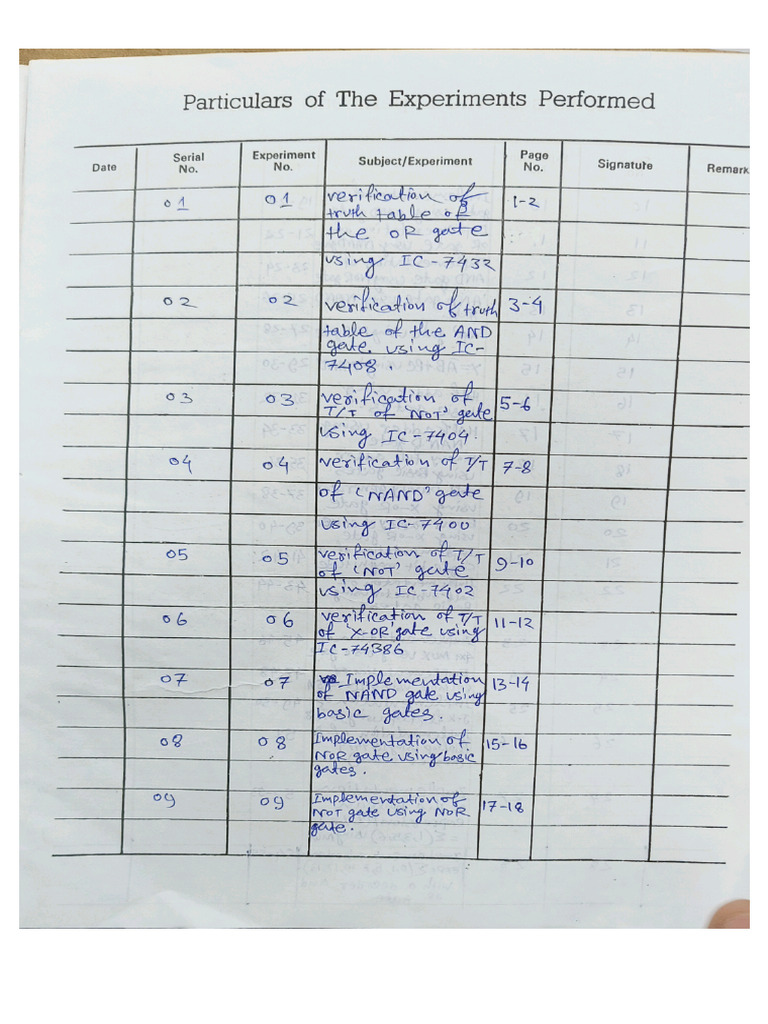 Particulars of The Experiments Performed
Date Serial No. Experiment No. Subject/Experiment Page No. Signature Remark
01 01 verification of 1-2
truth table of
the OR gate
using IC-7432
02 02 verification of truth 3-4
table of the AND
gate using IC-
7408.
03 03 verification of 5-6
T/T of 'NOT' gate
using IC-7404.
04 04 verification of T/T 7-8
of 'NAND' gate
using IC-7400
05 05 verification of T/T 9-10
of 'NOT' gate
using IC-7402
06 06 verification of T/T 11-12
of X-OR gate using
IC-74386
07 07 Implementation 13-14
of NAND gate using
basic gates.
08 08 Implementation of 15-16
NOR gate using basic
gates.
09 09 Implementation of 17-18
NOT gate using NOR
gate.